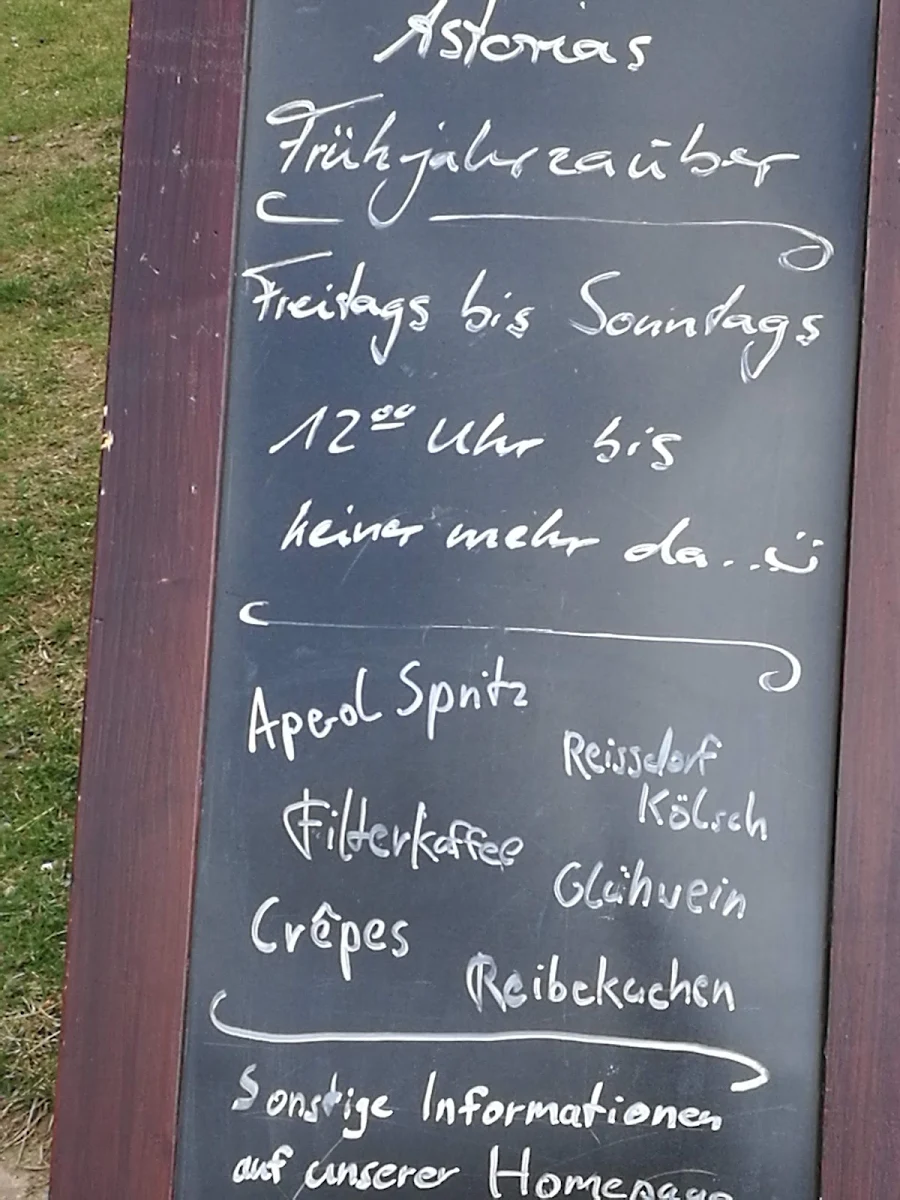 Astorias
Frühjahrzauber
Freitags bis Sonntags
12⁰⁰ Uhr bis
keiner mehr da...
Aperol Spritz
Reissdorf
Kölsch
Filterkaffee
Glühwein
Crêpes
Reibekuchen
Sonstige Informationen
auf unserer Homepage